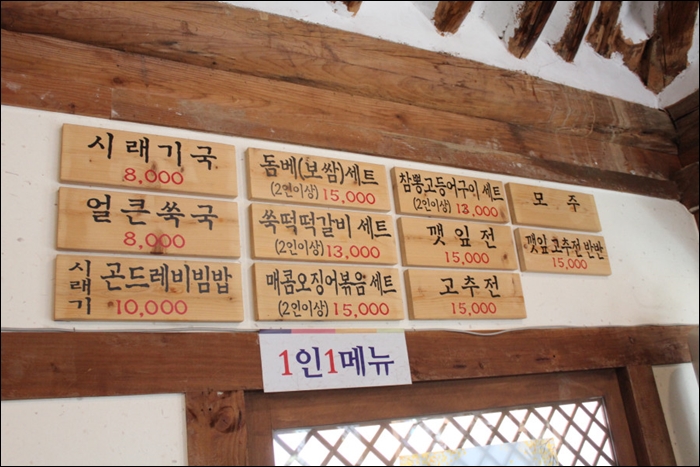 시래기국
8,000
얼큰쑥국
8,000
시래기 곤드레비빔밥
10,000
돔베(보쌈)세트
(2인이상) 15,000
쑥떡떡갈비 세트
(2인이상) 13,000
매콤오징어볶음 세트
(2인이상) 15,000
참뽕고등어구이 세트
(2인이상) 13,000
깻잎전
15,000
고추전
15,000
모주
깻잎고추전 반반
15,000
1인1메뉴